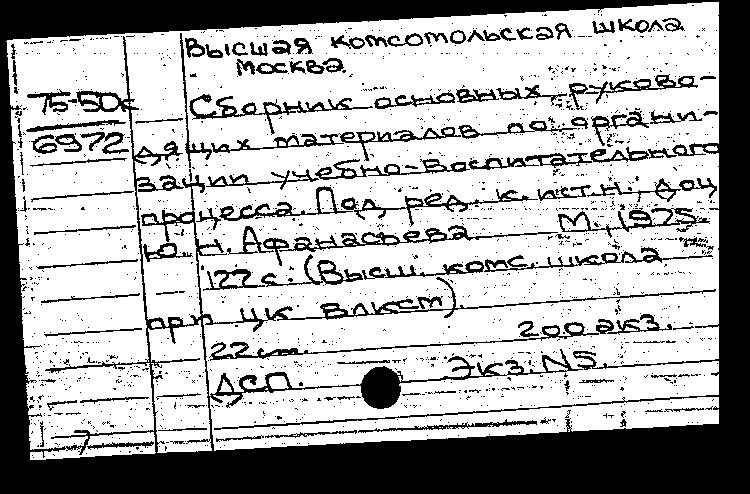 Высшая комсомольская школа
Москва.
75-50к
6972
Сборник основных руково-
дящих материалов по органи-
зации учебно-воспитательного
процесса. Под ред. к.ист.н., доц.
Ю.Н. Афанасьева. М., 1975.
122 с. (Высш. комс. школа
при ЦК ВЛКСМ).
22 см. 200 экз.
ДСП. Экз. N5.
7